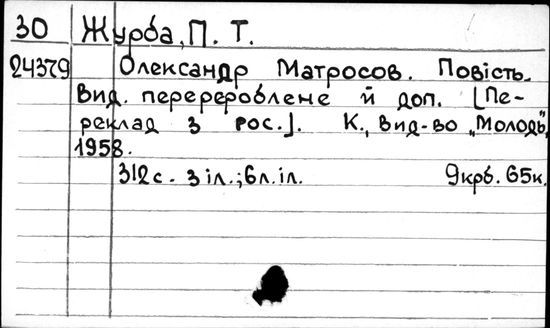 30 Журба, П. Т.
24379 Олександр Матросов. Повість.
Вид. перероблене й доп. [Пе-
реклад з рос.]. К., Вид-во „Молодь",
1958.
312 с. з іл.; 6 л. іл. 9 крб. 65 к.